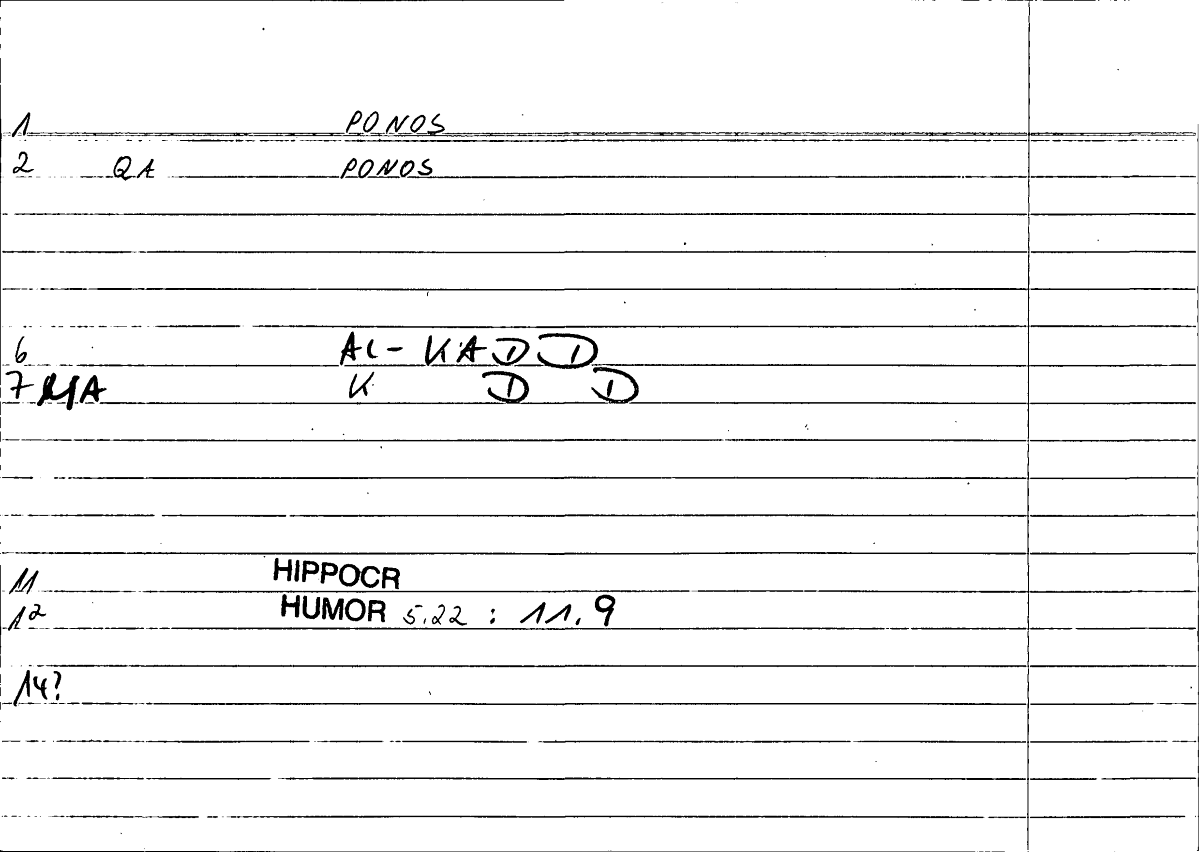 1 PONOS
2 QA PONOS
6 AL-KADD
7 MA K D D
11 HIPPOCR
12 HUMOR 5.22 : 11.9
14?